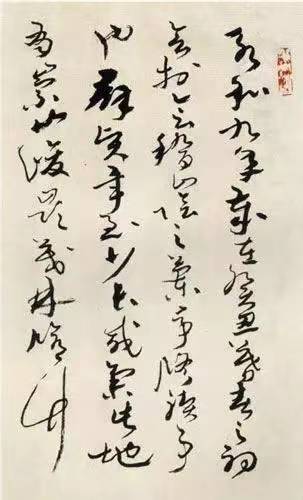 永和九年歲在癸丑暮春之初
會於會稽山陰之蘭亭脩禊事
也群賢畢至少長咸集此地
有崇山峻領茂林脩竹